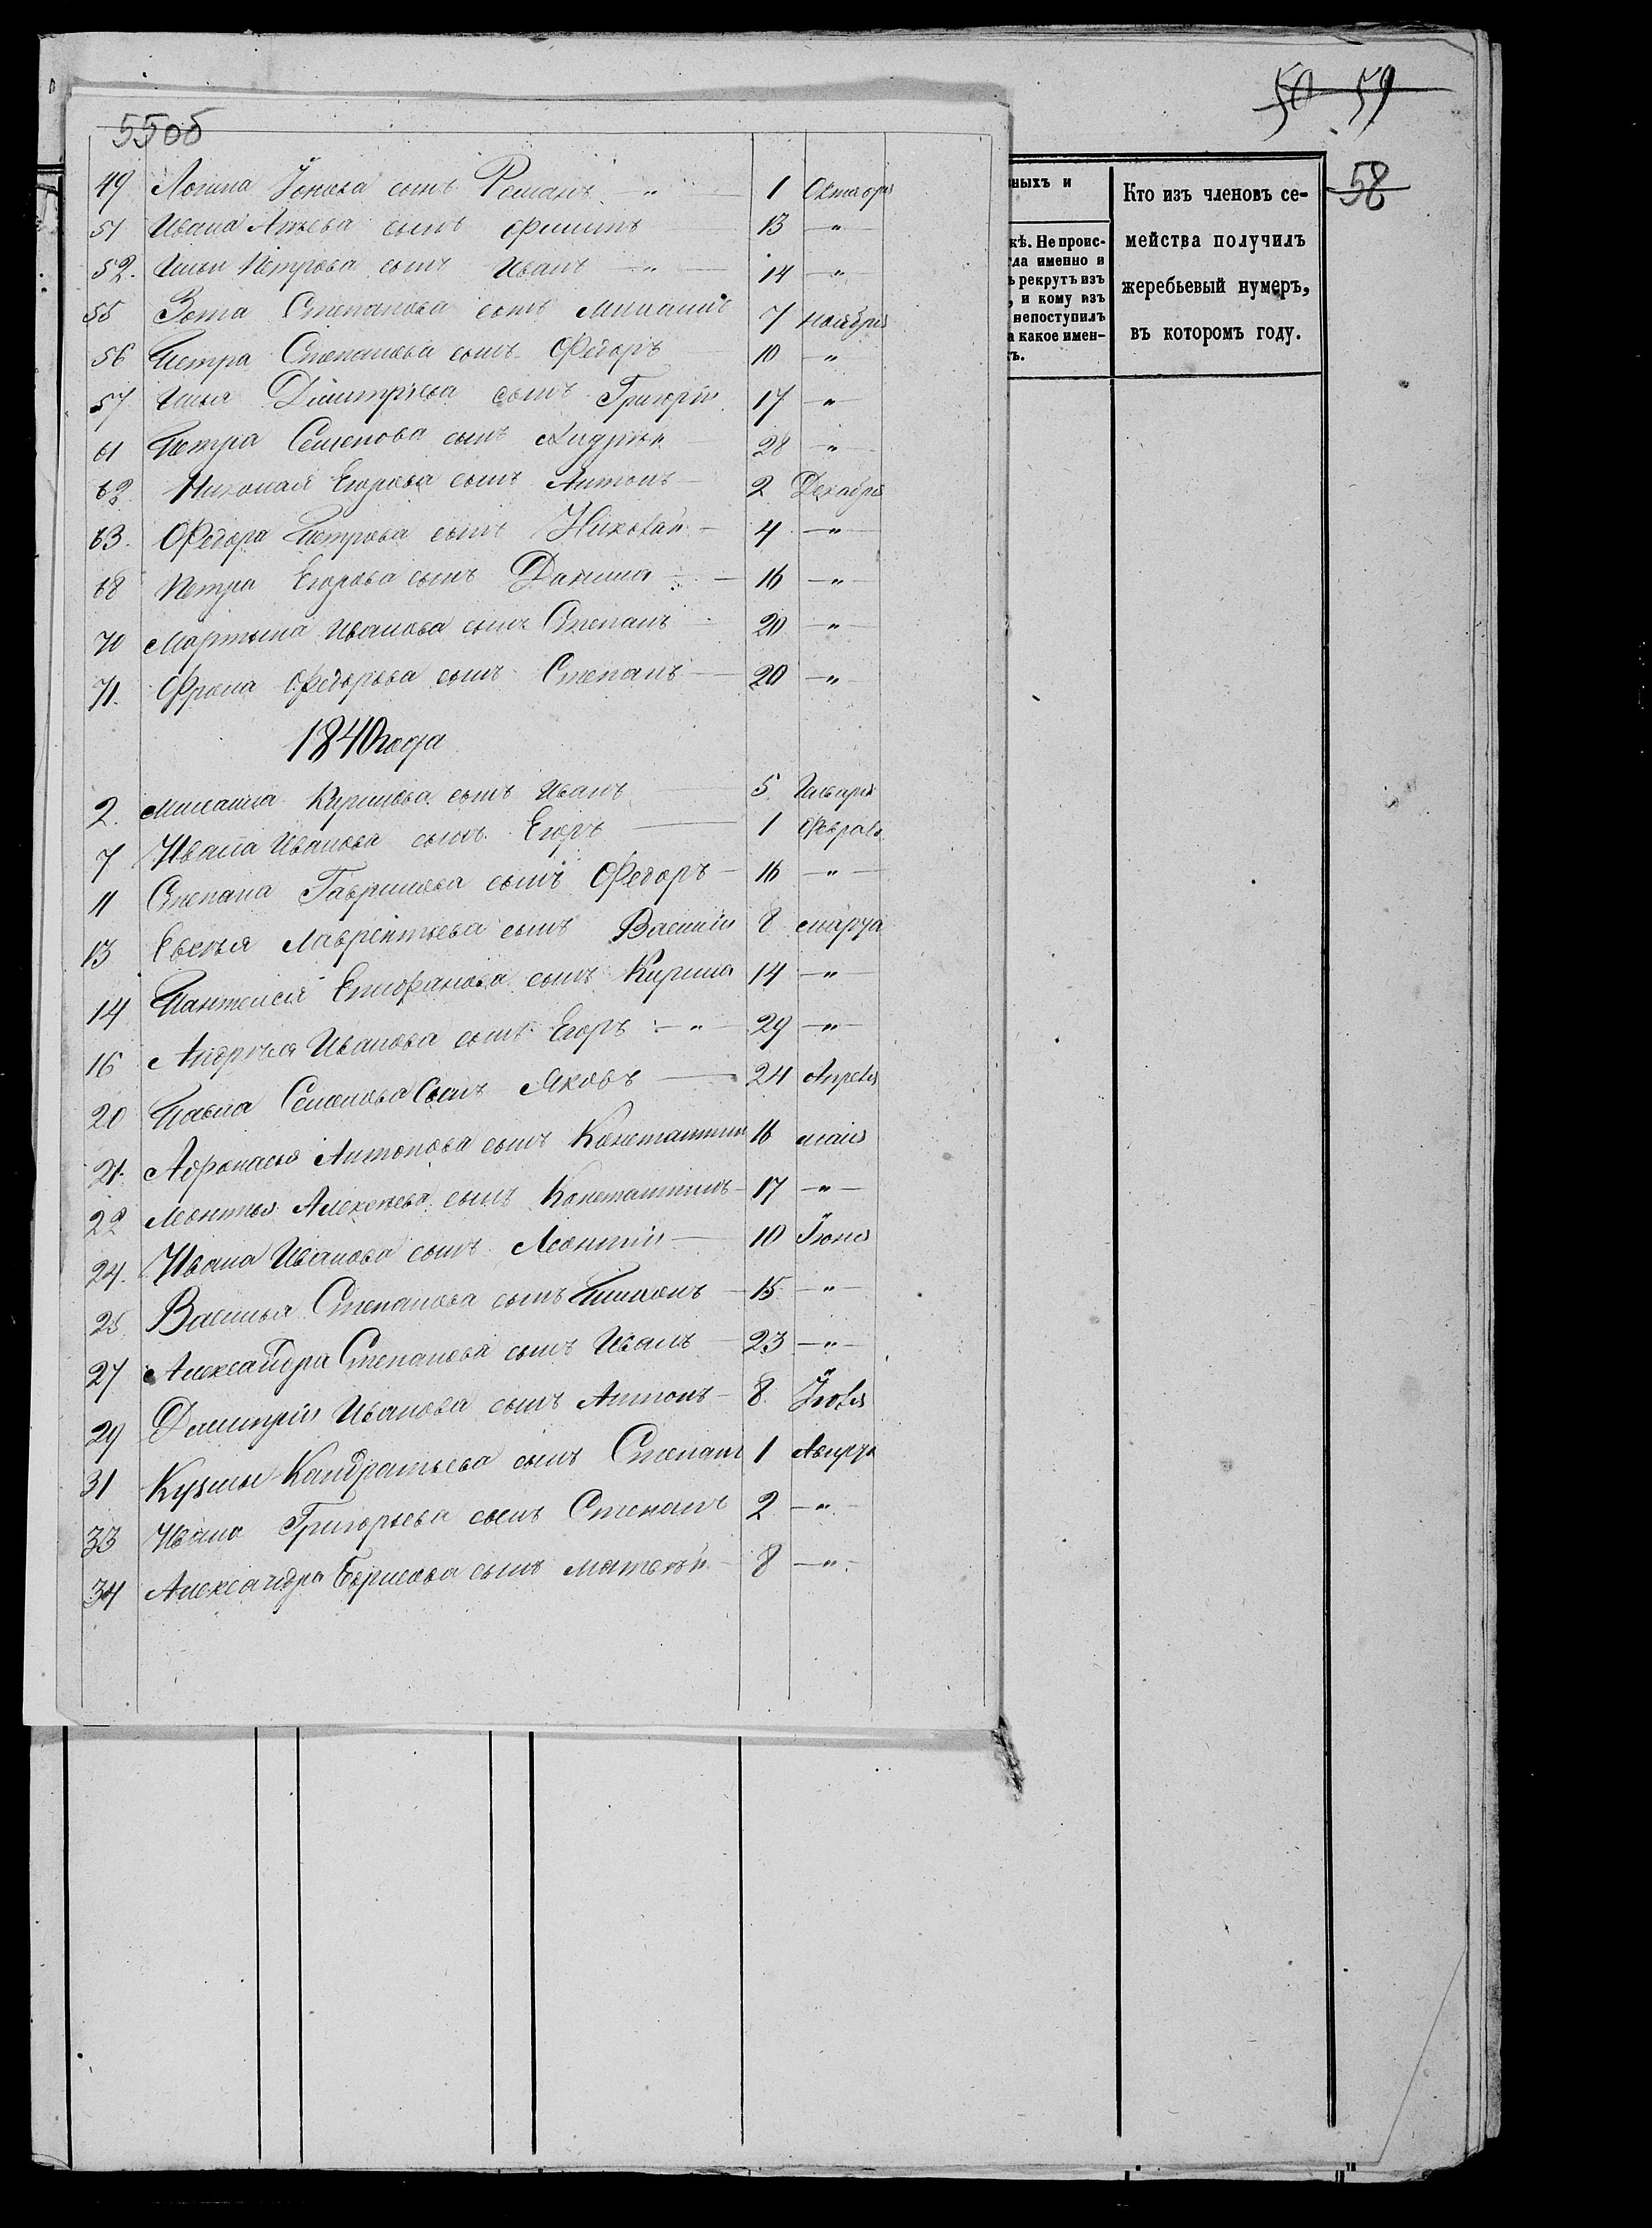 50 59
55об
58
49 Логина Іонова сынъ Романъ " 1 Октября
51 Ивана сынъ Филипъ 13 "
52. Ильи Петрова сынъ Иванъ " 14 "
55 Зота Степанова сынъ Михаилъ 7 Ноября
56 Петра Степанова сынъ Федоръ 10 "
57 Ильи Дмитріева сынъ Григорій 17 "
61 Петра Семенова сынъ Андрей 28 "
62. Николая Егорова сынъ Антонъ 2 Декабря
63. Федора Петрова сынъ Николай 4 "
68 Петра Егорова сынъ Данила 16 "
70 Мартына Иванова сынъ Степанъ 20 "
71. Фрола Федорова сынъ Степанъ 20 "
1840 года
2. Михаила Кирилова сынъ Иванъ 5 Генваря
7 Ивана Иванова сынъ Егоръ 1 Февраля
11 Степана Гаврилова сынъ Федоръ 16 "
13 Евсѣя Лаврентьева сынъ Василій 8 Марта
14 Пантелея Епифанова сынъ Кирила 14 "
16 Андрѣя Иванова сынъ Егоръ " 29 "
20 Павла Семенова Сынъ Яковъ 24 Апреля
21. Афонасья Антонова сынъ Константинъ 16 Маія
22 Леонтья Алексѣева сынъ Константинъ 17 "
24. Ивана Иванова сынъ Леонтій 10 Іюня
25. Василья Степанова сынъ 15 "
27 Александра Степанова сынъ Иванъ 23 "
29 Дмитрія Иванова сынъ Антонъ 8 Іюля
31 Кузмы Кандратьева сынъ Степанъ 1 Августа
33 Ивана Григорьева сынъ Степанъ 2 "
34 Александра Борисова сынъ Матвѣй 8 "
ныхъ и
кѣ. Не проис-
гла именно и
ъ рекрутъ изъ
, и кому изъ
непоступилъ
а какое имен-
ъ.
Кто изъ членовъ се-
мейства получилъ
жеребьевый нумеръ,
въ которомъ году.